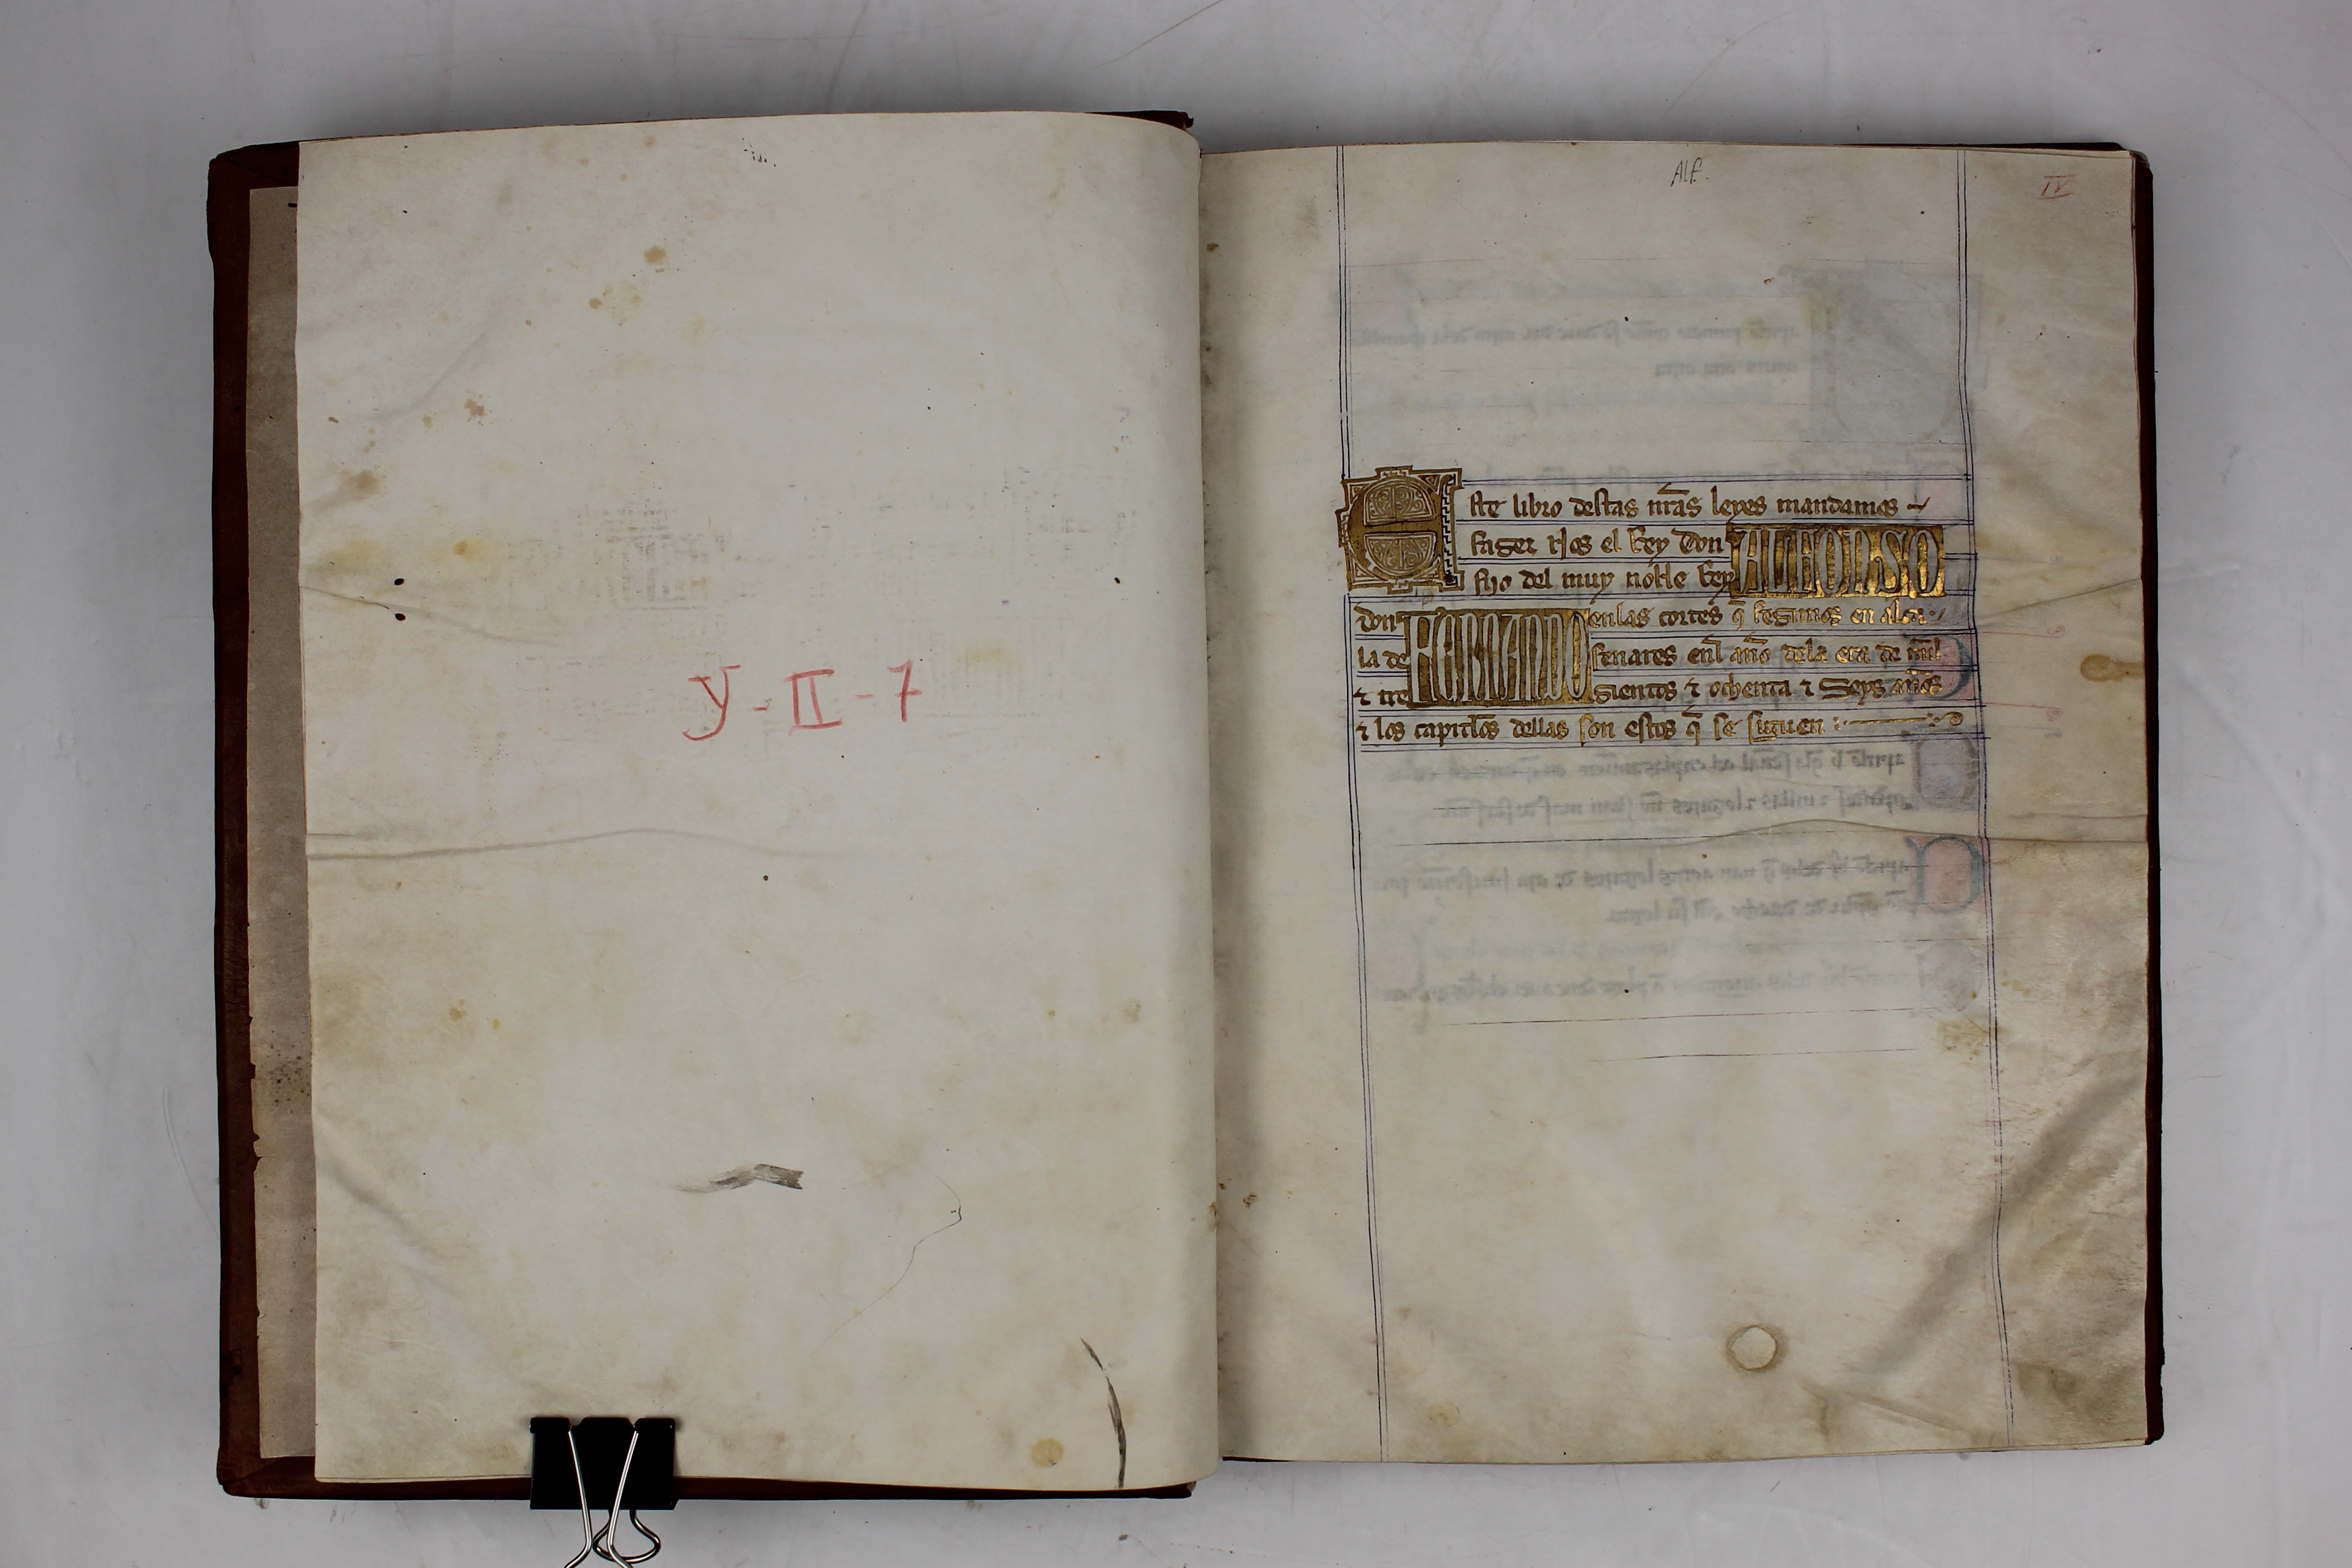 Y-II-7
Alf.
IV
Este libro destas nr̃as leyes mandamos
faser Nos el Rey Don ALFONSO
fijo del muy noble Rey
don FERNANDO en las cortes q̃ fegimos en alca
la de fenares enl año dela era de mil
⁊ tresientos ⁊ ochenta ⁊ Seys años
⁊ los capitl̃os dellas son estos q̃ se siguen :